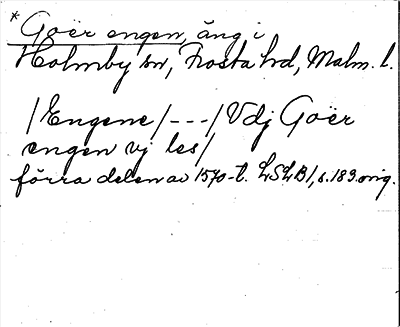 * Goër engen, äng i
Holmby sn, Frosta hd, Malm. l.
/Engene/---/Vdj Goër
engen vj les/
förra delen av 1570-t. LSLB1, s. 189 orig.